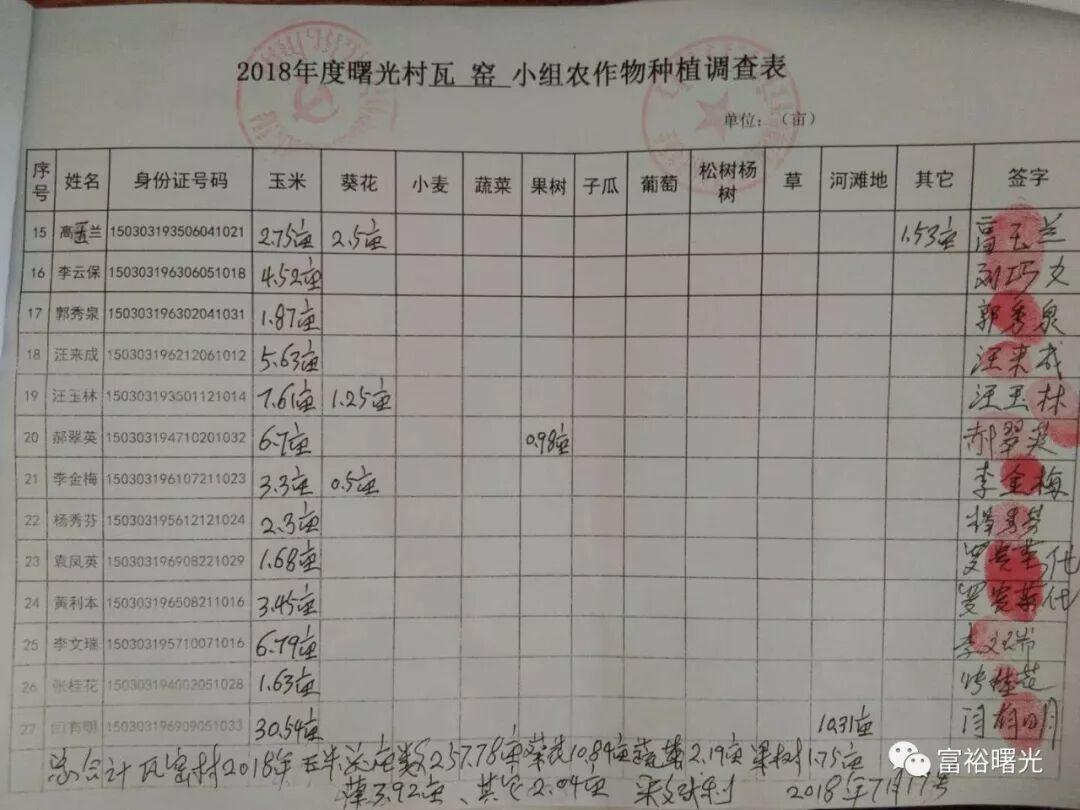 2018年度曙光村瓦 窑 小组农作物种植调查表
单位：（亩）
序号 姓名 身份证号码 玉米 葵花 小麦 蔬菜 果树 子瓜 葡萄 松树杨树 草 河滩地 其它 签字
15 高玉兰 150303193506041021 2.75亩 2.5亩 1.53亩 高玉兰
16 李云保 150303196306051018 4.52亩 刘巧
17 郭秀泉 150303196302041031 1.87亩 郭秀泉
18 汪来成 150303196212061012 5.63亩 汪来成
19 汪玉林 150303193501121014 7.61亩 1.25亩 汪玉林
20 郝翠英 150303194710201032 6.7亩 0.98亩 郝翠英
21 李金梅 150303196107211023 3.3亩 0.5亩 李金梅
22 杨秀芬 150303195612121024 2.3亩 杨秀芬
23 袁凤英 150303196908221029 1.68亩 代
24 黄利本 150303196508211016 3.45亩 代
25 李文瑞 150303195710071016 6.79亩 李文瑞
26 张桂花 150303194002051028 1.63亩 张桂花
27 闫有明 150303196909051033 30.54亩 10.31亩 闫有明
总合计瓦窑村2018年玉米总亩数257.78亩葵花10.84亩蔬菜2.19亩果树1.75亩
3.92亩、其它2.04亩 2018年7月17号
富裕曙光